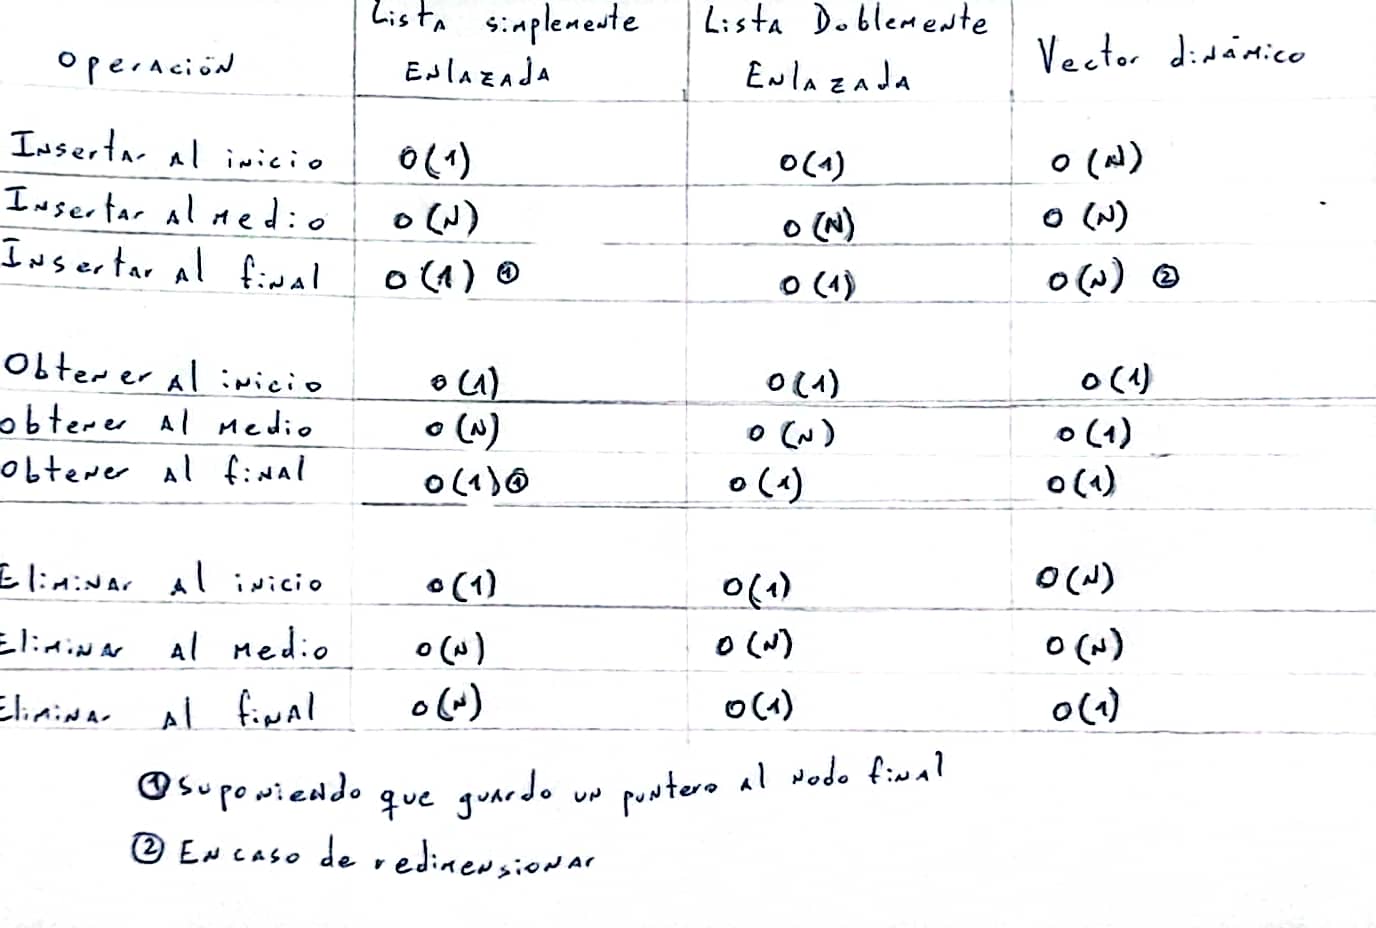 Operación | Lista simplemente Enlazada | Lista Doblemente Enlazada | Vector dinámico
Insertar al inicio | O(1) | O(1) | O(N)
Insertar al medio | O(N) | O(N) | O(N)
Insertar al final | O(1) ① | O(1) | O(N) ②
Obtener al inicio | O(1) | O(1) | O(1)
obtener al medio | O(N) | O(N) | O(1)
obtener al final | O(1) ① | O(1) | O(1)
Eliminar al inicio | O(1) | O(1) | O(N)
Eliminar al medio | O(N) | O(N) | O(N)
Eliminar al final | O(N) | O(1) | O(1)
① Suponiendo que guardo un puntero al nodo final
② En caso de redimensionar